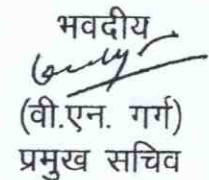 भवदीय
(वी.एन. गर्ग)
प्रमुख सचिव